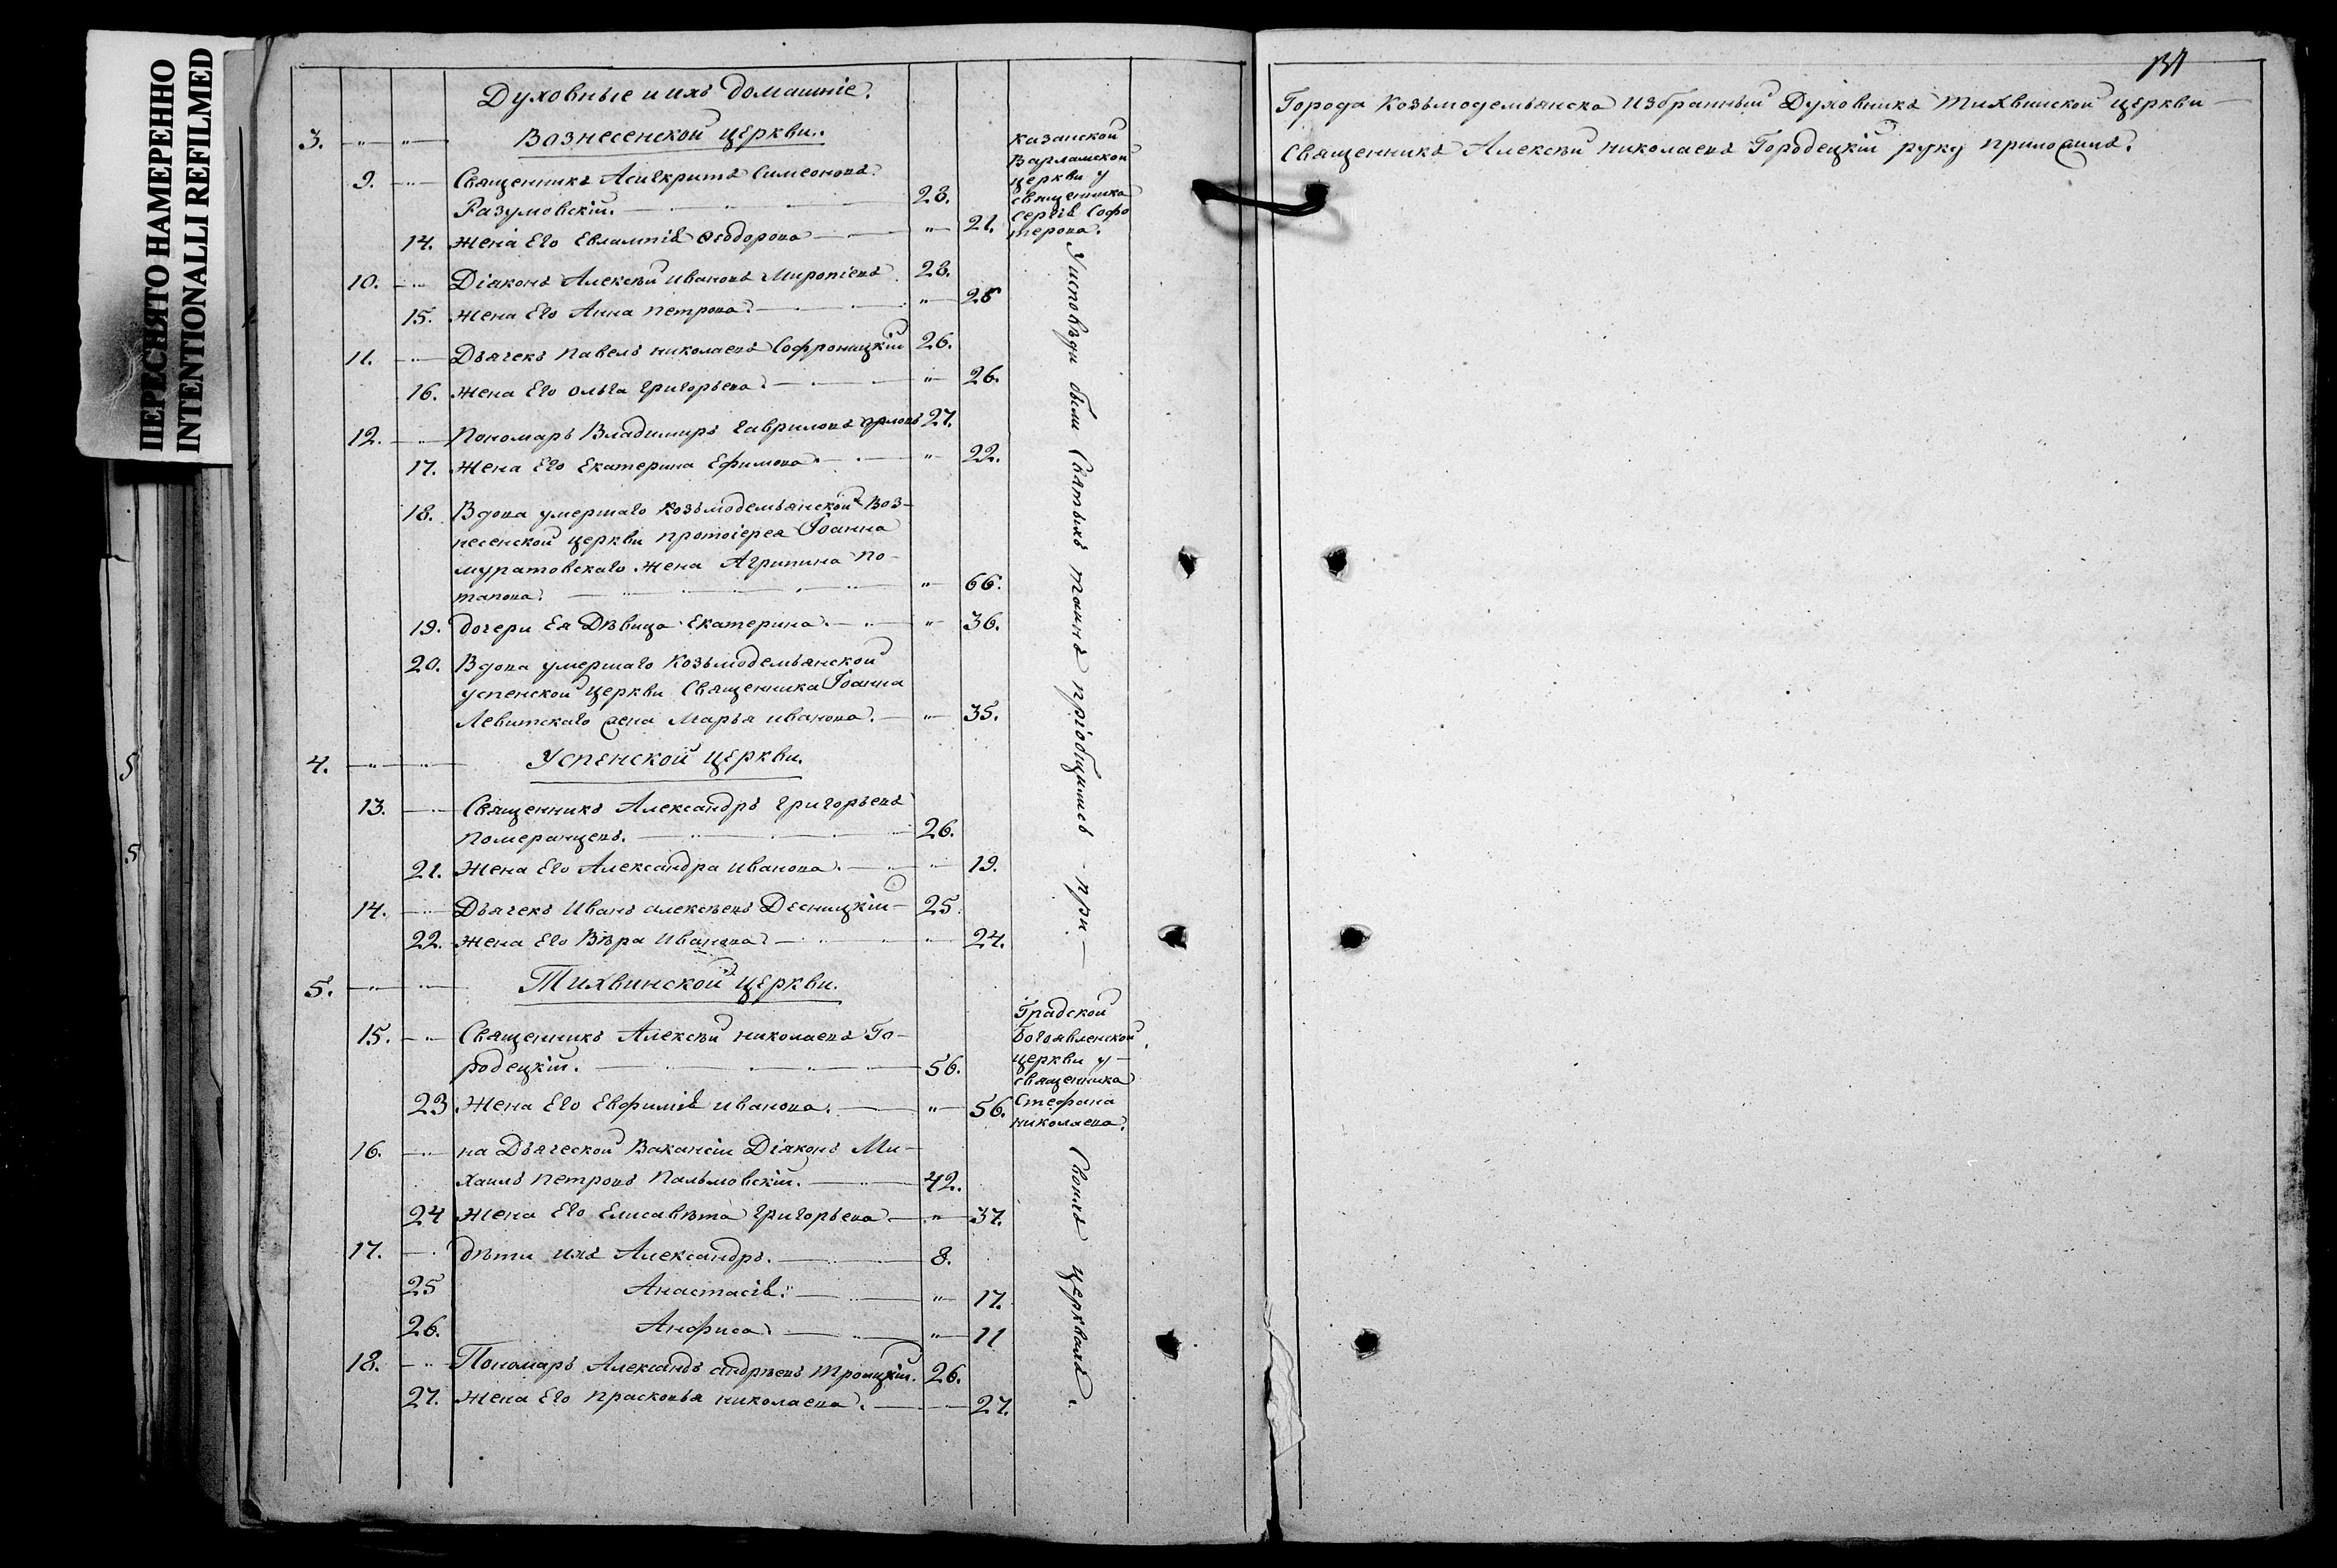 ПЕРЕСНЯТО НАМЕРЕННО
INTENTIONALLI REFILMED
Духовные и ихъ домашніе.
3. " " Вознесенской церкви.
9. " Священникъ Асигкритъ Симеоновъ
Разумовскій. 28.
14. Жена Его Евлампія Ѳеодорова " 21.
10. " Діаконъ Алексѣй Ивановъ Миропіевъ 28.
15. Жена Его Анна Петрова. " 25
11. " Дьячекъ Павелъ Николаевъ Софроницкій 26.
16. Жена Его Ольга Григорьева. " 26.
12. " Пономарь Владимиръ Гавриловъ Орловъ 27.
17. Жена Его Екатерина Ефимова. " 22.
18. Вдова умершаго Козьмодемьянской Воз-
несенской церкви протоіерея Іоанна
Муратовскаго Жена Агрипина По-
тапова. " 66.
19. дочери Ея Дѣвица Екатерина. " 36.
20. Вдова умершаго Козьмодемьянской
Успенской церкви Священника Іоанна
Левитскаго жена Марья Иванова. " 35.
4. " " Успенской церкви.
13. " Священникъ Александръ Григорьевъ
Померанцевъ. 26.
21. Жена Его Александра Иванова. " 19.
14. " Дьячекъ Иванъ Алексѣевъ Десницкій 25.
22. Жена Его Вѣра Иванова " 24.
5. " " Тихвинской церкви.
15. " Священникъ Алексѣй Николаевъ Го-
родецкій. 56.
23. Жена Его Евфимія Иванова. " 56.
16. " на Дьяческой Вакансіи Діаконъ Ми-
хаилъ Петровъ Пальмовскій. 42.
24 Жена Его Елисавѣта Григорьева " 37.
17. " дѣти ихъ Александръ. 8.
25 Анастасія. " 17.
26. Анфиса " 11
18. " Пономарь Александъ Андрѣевъ Троицкій. 26.
27. Жена Его Прасковья Николаева. 27.
Казанской
Варламской
церкви у
священника
Сергія Софо
терова.
У исповѣди были Святыхъ Таинъ пріобщились при
Градской
Богоявленской
церкви у
священника
Стефана
Николаева.
Своихъ церквахъ.
5
5
131
Города Козьмодемьянска Избранный Духовникъ Тихвинской церкви
Священникъ Алексѣй Николаевъ Городецкій руку приложилъ.